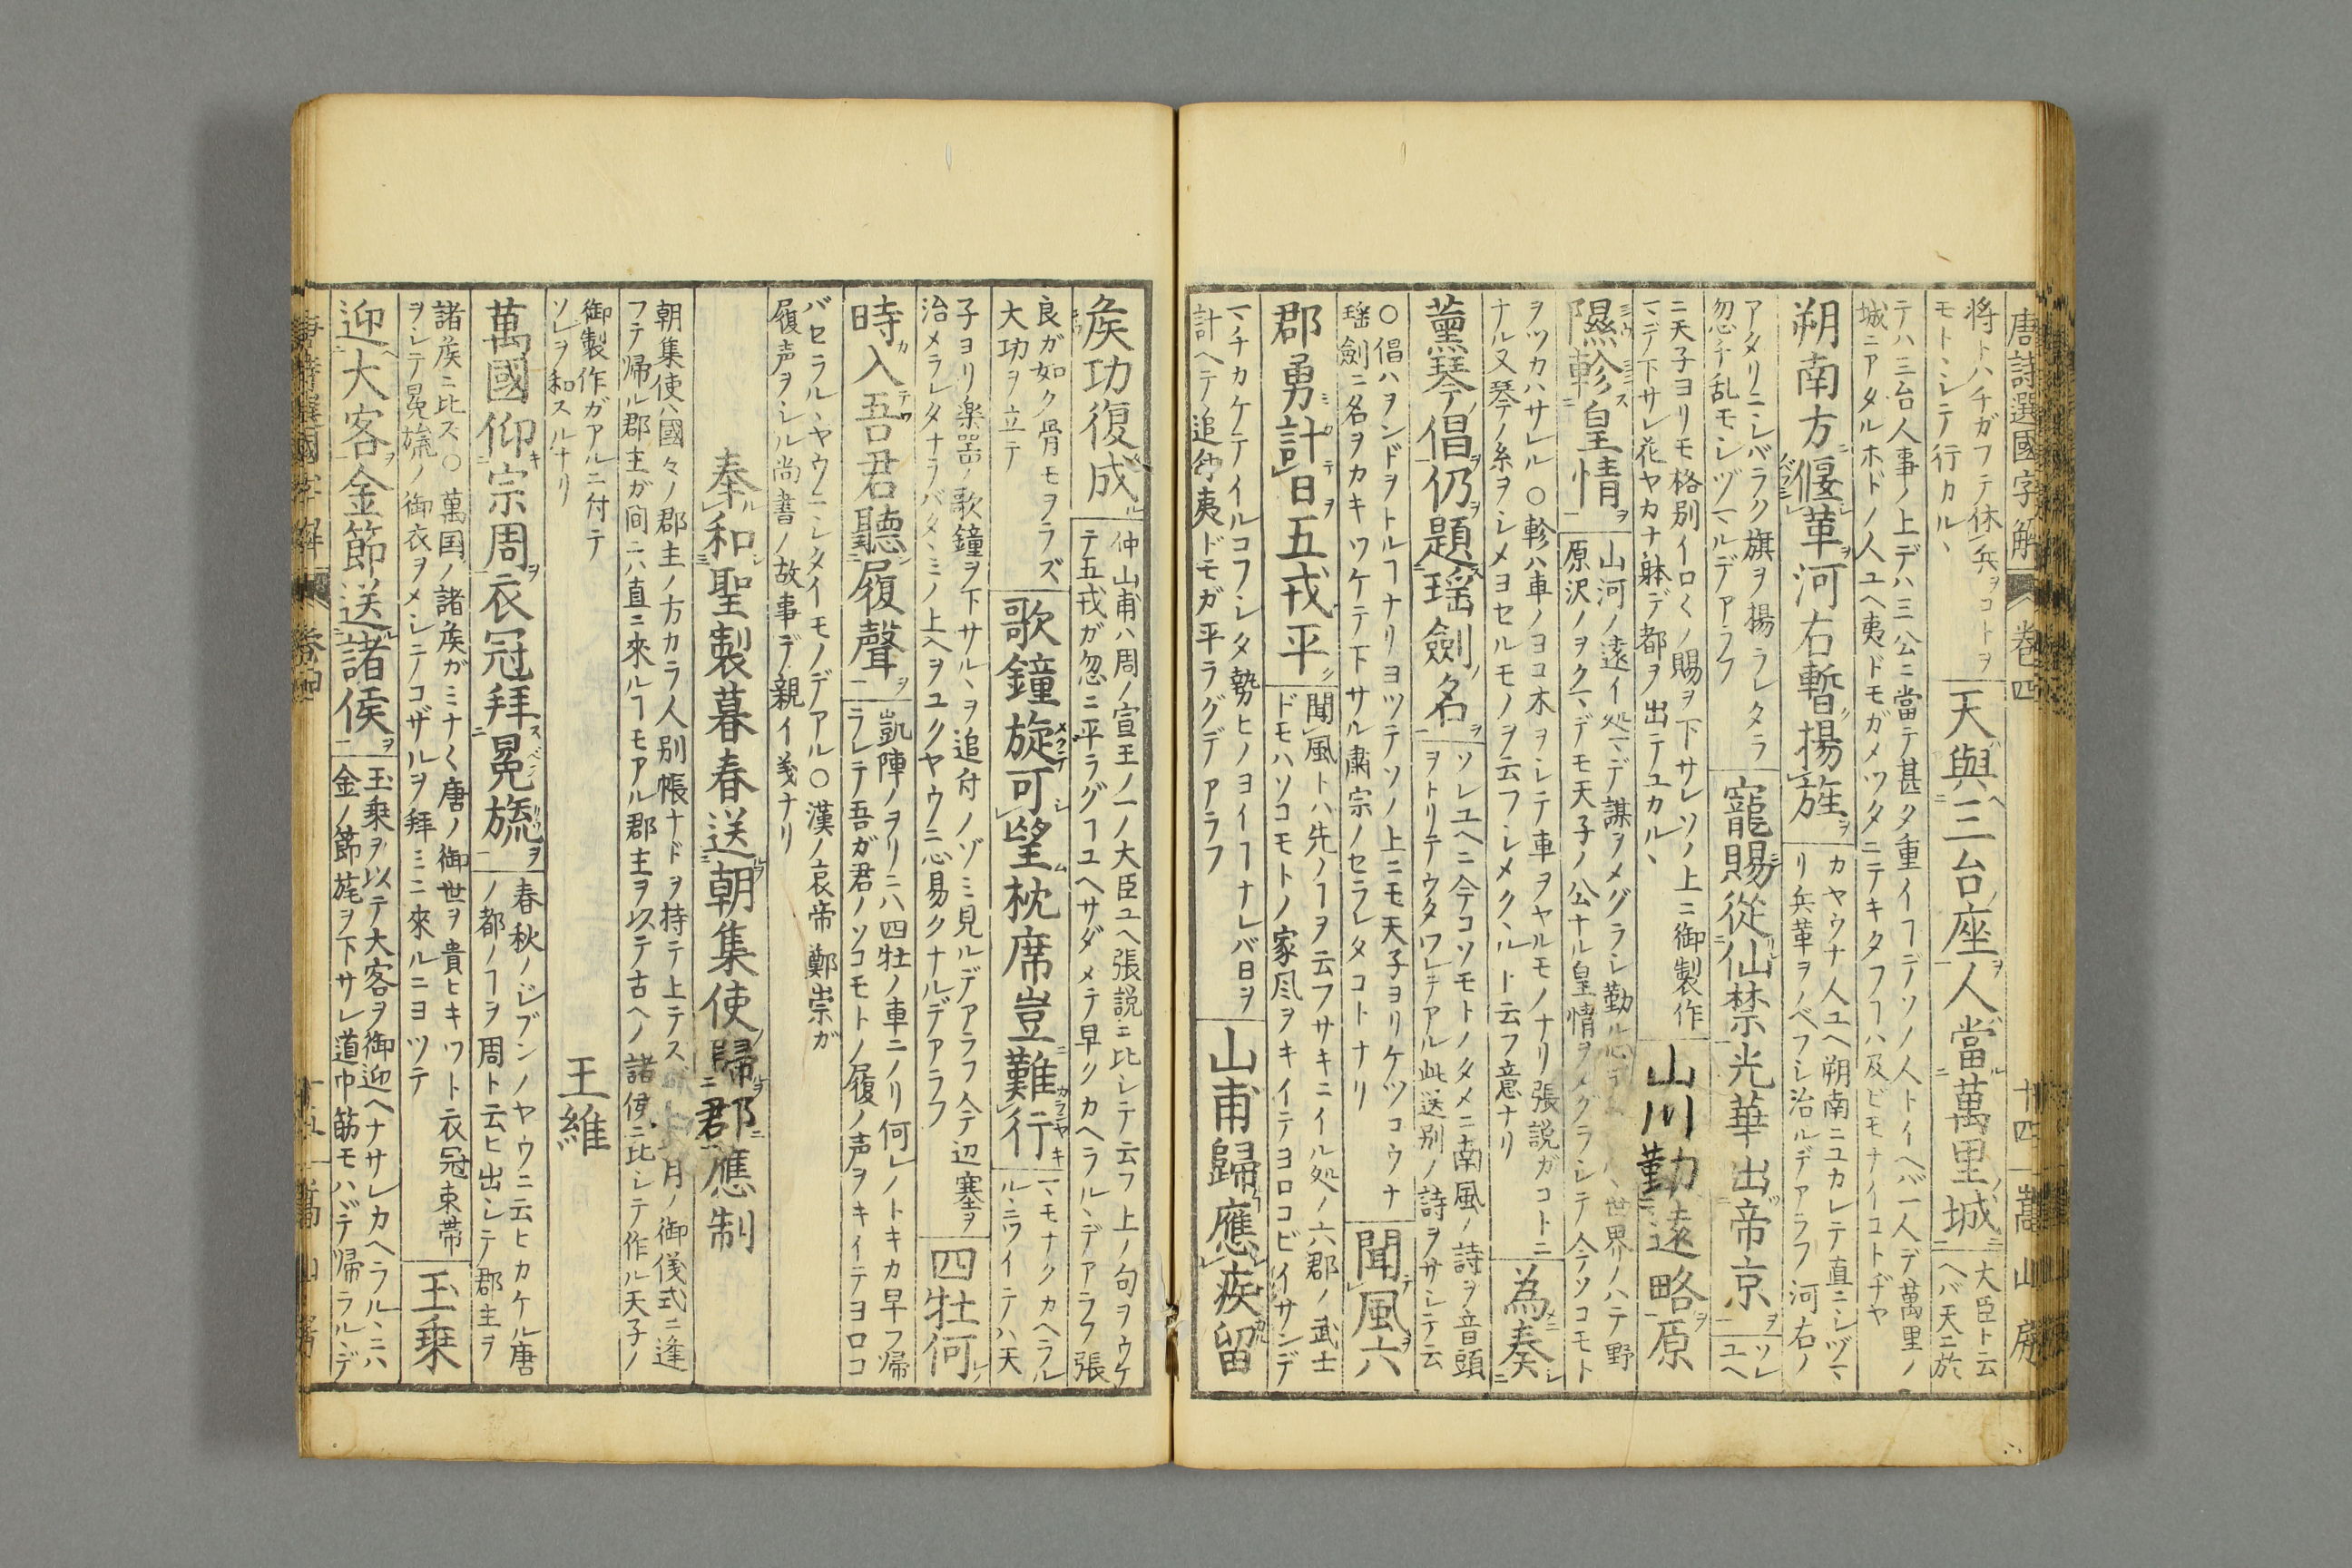 唐詩選國字解 巻四 十四 嵩山房
将トハチガフテ休兵ヲコトヲ
モトヽシテ行カルヽ
天與三台座人當萬里城
大臣ト云
ヘバ天ニ於
テハ三台人事ノ上デハ三公ニ當テ甚タ重イヿデソノ人トイヘバ一人デ萬里ノ
城ニアタルホドノ人ユヘ夷ドモガメツタニテキタフヿハ及ビモナイコトヂヤ
朔南方偃革河右暫揚旌
カヤウナ人ユヘ朔南ニユカレテ直ニシヅマ
リ兵革ヲノベフシ治ルデアラフ河右ノ
アタリニシバラク旗ヲ揚ラレタラ
忽チ乱モシヅマルデアラフ
寵賜從仙禁光華出帝京
ソレ
ユヘ
ニ天子ヨリモ格別イロ〱ノ賜ヲ下サレソノ上ニ御製作
マデ下サレ花ヤカナ躰デ都ヲ出テユカルヽ
山川勤遠略原
隰軫皇情
山河ノ遠イ処マデ謀ヲメグラシ勤ル 世界ノハテ野
原沢ノヲクマデモ天子ノ公ナル皇情ヲメグラシテ今ソコモト
ヲツカハサレル○軫ハ車ノヨコ木ヲシテ車ヲヤルモノナリ張説ガコトニ
ナル又琴ノ糸ヲシメヨセルモノヲ云フシメクヽルト云フ意ナリ
為奏
薫琴倡仍題瑶劍名
ソレユヘニ今コソモトノタメニ南風ノ詩ヲ音頭
ヲトリテウタワレテアル此送別ノ詩ヲサシテ云
○倡ハヲンドヲトルヿナリヨツテソノ上ニモ天子ヨリケツコウナ
瑶劍ニ名ヲカキワケテ下サル粛宗ノセラレタコトナリ
聞風六
郡勇計日五戎平
聞風トハ先ノヿヲ云フサキニイル処ノ六郡ノ武士
ドモハソコモトノ家風ヲキイテヨロコビイサンデ
マチカケテイルコフシタ勢ヒノヨイヿナレバ日ヲ
計ヘテ追付夷ドモガ平ラグデアラフ
山甫歸應疾留
矦功復成
仲山甫ハ周ノ宣王ノ一ノ大臣ユヘ張説ニ比シテ云フ上ノ句ヲウケ
テ五戎ガ忽ニ平ラグヿユヘサダメテ早クカヘラルヽデアラフ張
良ガ如ク骨モヲラズ
大功ヲ立テ
歌鐘旋可望枕席豈難行
マモナクカヘラル
ルニツイテハ天
子ヨリ楽噐ノ歌鐘ヲ下サルヽヲ追付ノゾミ見ルデアラフ今デ辺塞ヲ
治メラレタナラバタヽミノ上ヘヲユクヤウニ心易クナルデアラフ
四牡何
時入吾君聽履聲
凱陣ノヲリニハ四牡ノ車ニノリ何レノトキカ早フ帰
ラレテ吾ガ君ノソコモトノ履ノ声ヲキイテヨロコ
バセラルヽヤウニシタイモノデアル○漢ノ哀帝鄭崇ガ
履声ヲシル尚書ノ故事デ親イ義ナリ
奉和聖製暮春送朝集使歸郡應制
朝集使ハ國々ノ郡主ノ方カラ人別帳ナドヲ持テ上テス 月ノ御儀式ニ逢
フテ帰ル郡主ガ間ニハ直ニ來ルヿモアル郡主ヲ以テ古ヘノ諸侯ニ比シテ作ル天子ノ
御製作ガアルニ付テ
ソレヲ和スルナリ
王維
萬國仰宗周衣冠拜冕旒
春秋ノジブンノヤウニ云ヒカケル唐
ノ都ノヿヲ周ト云ヒ出シテ郡主ヲ
諸矦ニ比ス○萬国ノ諸矦ガミナ〱唐ノ御世ヲ貴ヒキワト衣冠束帯
ヲシテ冕旒ノ御衣ヲメシテノコザルヲ拜ミニ來ルニヨツテ
玉乗
迎大客金節送諸侯
玉乗ヲ以テ大客ヲ御迎ヘナサレカヘラルヽニハ
金ノ節旄ヲ下サレ道中筋モハデ帰ラルヽデ
唐詩選國字解 巻四 十五 嵩山房